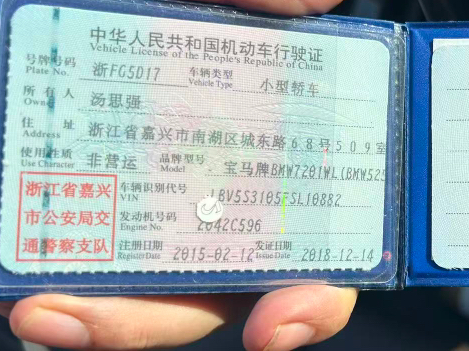 中华人民共和国机动车行驶证
Vehicle License of the People's Republic of China
号牌号码 浙FG5D17 车辆类型 小型轿车
Plate No. Vehicle Type
所有人 汤思强
Owner
住址 浙江省嘉兴市南湖区城东路68号509室
Address
使用性质 非营运 品牌型号 宝马牌BMW7201WL(BMW525
Use Character Model
浙江省嘉兴
市公安局交
通警察支队
车辆识别代号
VIN
发动机号码
Engine No.
注册日期 2015-02-12 发证日期 2018-12-14
Register Date Issue Date